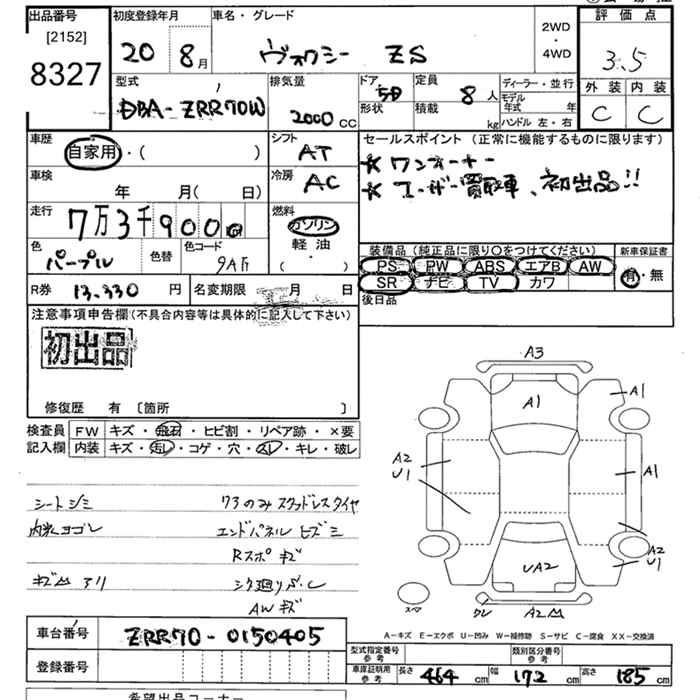 出品番号
[2152]
8327
初度登録年月
20 8月
車名・グレード
ヴォクシー ZS
2WD
・
4WD
評価点
3.5
外装 内装
C C
型式
DBA-ZRR70W
排気量
2000 CC
ドア 5D
形状
定員 8人
積載 kg
ディーラー・並行
モデル年式 年
ハンドル 左・右
車歴
自家用・( )
シフト
AT
車検
年 月( 日)
冷房
AC
走行
7万3千900
燃料
ガソリン
軽油
( )
色
パープル
色替
色コード
9AF
R券 13,330 円
名変期限 月 日
セールスポイント (正常に機能するものに限ります)
* ワンオーナー
* ユーザー買取車、初出品!!
装備品 (純正品に限り〇をつけてください)
PS PW ABS エアB AW
SR ナビ TV カワ
新車保証書
有・無
後日品
注意事項申告欄(不具合内容等は具体的に記入して下さい)
初出品
修復歴 有 〔箇所 〕
検査員記入欄
FW キズ・飛石・ヒビ割・リペア跡・×要
内装 キズ・汚レ・コゲ・穴・スレ・キレ・破レ
シートシミ
73のみスタッドレスタイヤ
内装ヨゴレ
エンドパネルヒズミ
Rスポキズ
キズ凹アリ
AWキズ
A3
A1
A1
A2
U1
A1
A2
U1
UA2
スペア
ワレ
A2凹
A-キズ E-エクボ U-凹み W-補修跡 S-サビ C-腐食 XX-交換済
車台番号 ZRR70-0150405
登録番号
型式指定番号
参考
類別区分番号
参考
車庫証明用
参考
長さ 464 cm 幅 172 cm 高さ 185 cm
希望出品コーナー